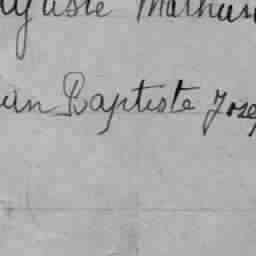 uguste Mathuri
an Baptiste Jose